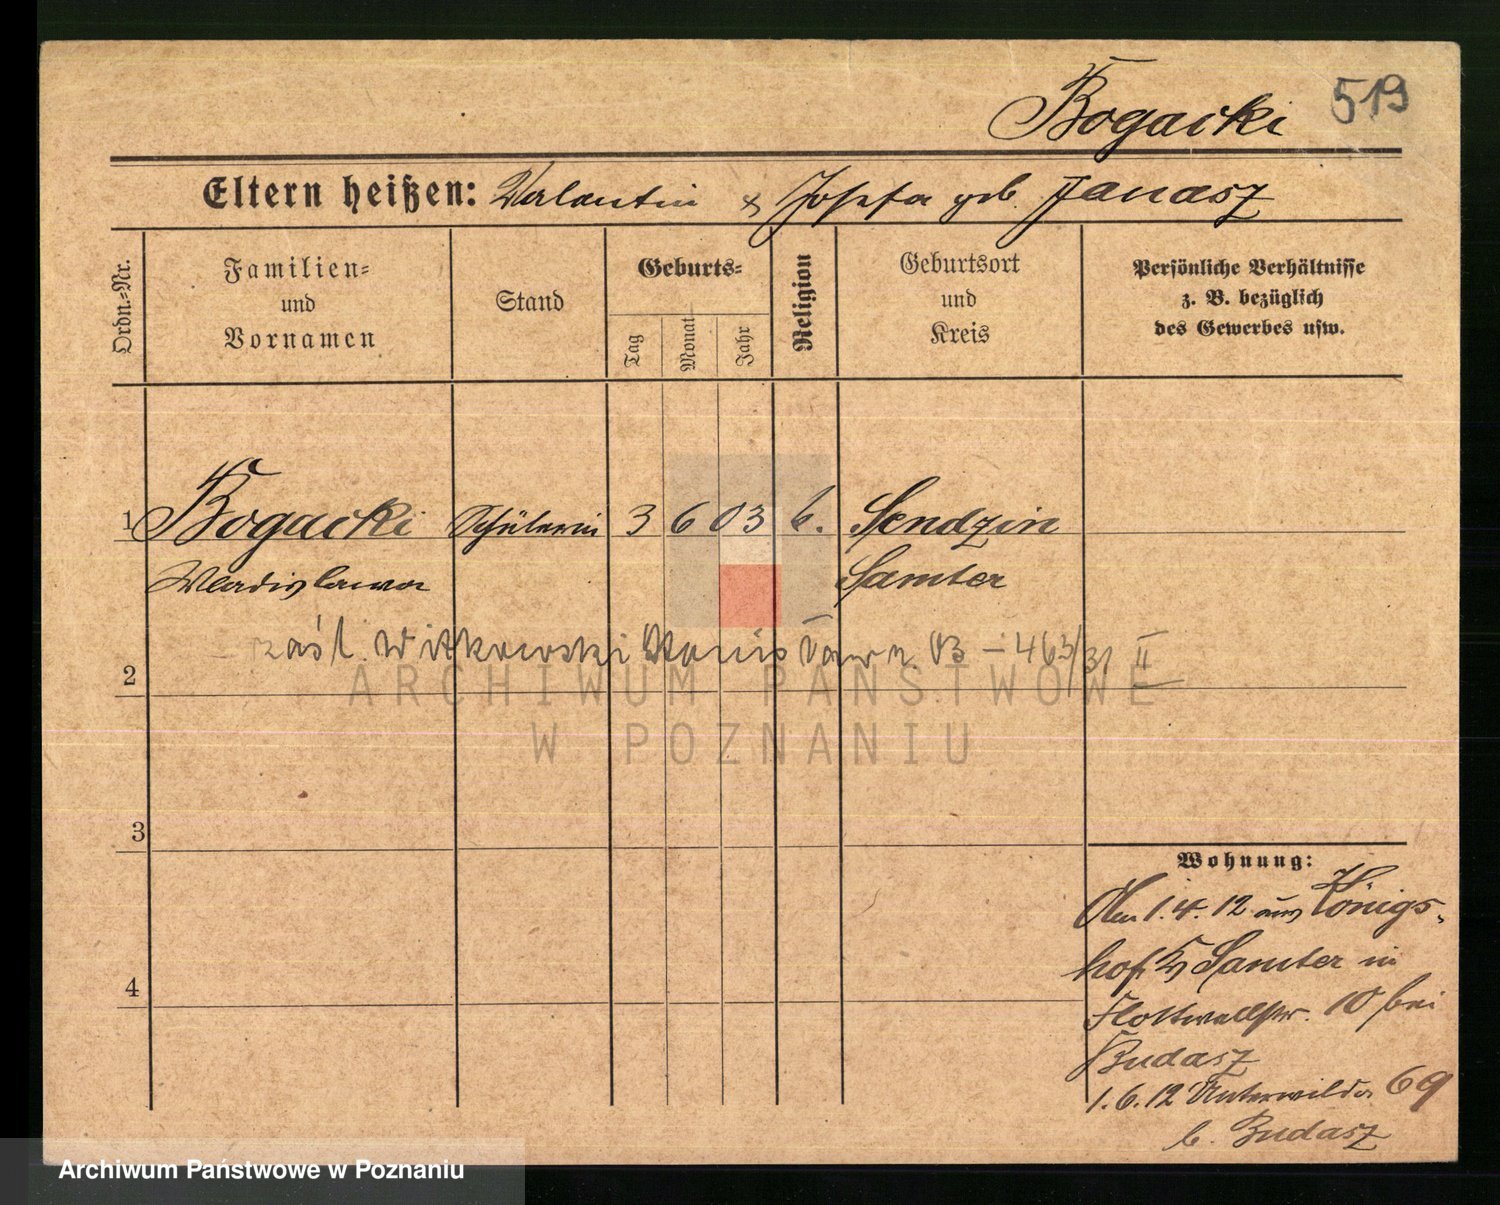 Bogacki 519
Eltern heißen: Valentin & Josefa geb. Janasz
Ordn.=Nr.
Familien=
und
Vornamen
Stand
Geburts=
Tag
Monat
Jahr
Religion
Geburtsort
und
Kreis
Persönliche Verhältnisse
z. B. bezüglich
des Gewerbes usw.
1 Bogacki Schülerin 3 6 03 k. Sendzin
Wladislawa Samter
zaśl. Witkowski Stanisława 03 – 463/31 II
2
ARCHIWUM PAŃSTWOWE
W POZNANIU
3
Wohnung:
Am 1.4.12 aus Königs-
hof, Kr Samter in
4
Flottwellstr. 10 bei
Budasz
1.6.12 Unterwilda 69
b. Budasz
Archiwum Państwowe w Poznaniu